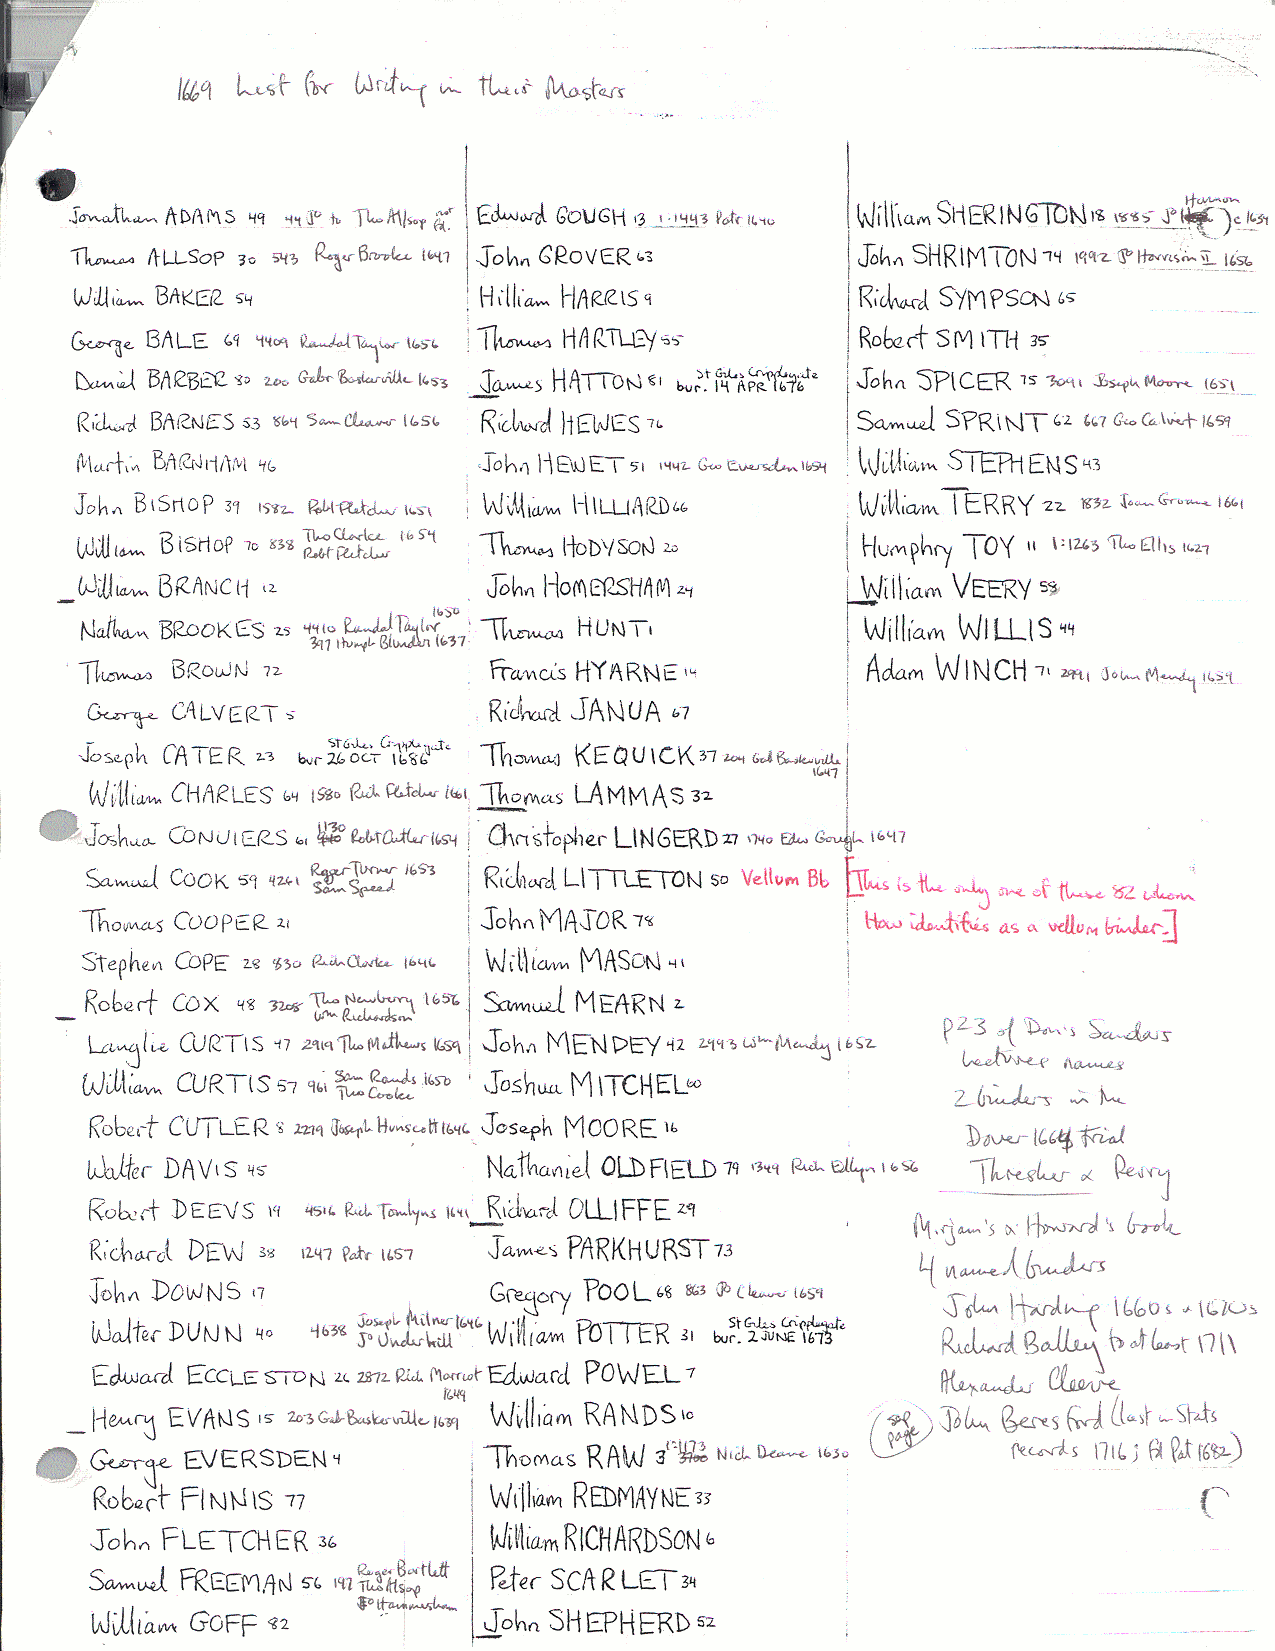 1669 List for Writing in Their Masters
Jonathan ADAMS 49 44 Jo to Tho Allsop not fd.
Thomas ALLSOP 30 543 Roger Brooke 1647
William BAKER 54
George BALE 69 4409 Randal Taylor 1656
Daniel BARBER 80 200 Gabr Baskerville 1653
Richard BARNES 53 864 Sam Cleaver 1656
Martin BARNHAM 46
John BISHOP 39 1582 Robt Fletcher 1651
William BISHOP 70 838 Tho Clarke 1654
Robt Fletcher
William BRANCH 12
Nathan BROOKES 25 4410 Randal Taylor 1650
397 Humph Blunden 1637
Thomas BROWN 72
George CALVERT 5
Joseph CATER 23 St Giles Cripplegate
bur 26 OCT 1686
William CHARLES 64 1580 Rich Fletcher 1661
Joshua CONUIERS 61 1130 Robt Cutler 1654
Samuel COOK 59 4261 Roger Turner 1653
Sam Speed
Thomas COOPER 21
Stephen COPE 28 830 Rich Clarke 1646
Robert COX 48 3208 Tho Newberry 1656
Wm Richardson
Langlie CURTIS 47 2919 Tho Mathews 1659
William CURTIS 57 961 Sam Rands 1650
Tho Cooke
Robert CUTLER 8 2279 Joseph Hunscott 1646
Walter DAVIS 45
Robert DEEVS 19 4516 Rich Tomlyns 1641
Richard DEW 38 1247 Patr 1657
John DOWNS 17
Walter DUNN 40 4638 Joseph Milner 1646
Jo Underhill
Edward ECCLESTON 26 2872 Rich Marriot
1649
Henry EVANS 15 203 Gab Baskerville 1639
George EVERSDEN 4
Robert FINNIS 77
John FLETCHER 36
Samuel FREEMAN 56 192 Roger Bartlett
Tho Alsop
Jo Hammersham
William GOFF 82
Edward GOUGH 13 1:1443 Patr 1640
John GROVER 63
Hilliam HARRIS 9
Thomas HARTLEY 55
James HATTON 81 St Giles Cripplegate
bur. 14 APR 1676
Richard HEWES 76
John HEWET 51 1442 Geo Eversden 1654
William HILLIARD 66
Thomas HODYSON 20
John HOMERSHAM 24
Thomas HUNT 1
Francis HYARNE 14
Richard JANUA 67
Thomas KEQUICK 37 204 Gab Baskerville
1647
Thomas LAMMAS 32
Christopher LINGERD 27 1740 Edw Gough 1647
Richard LITTLETON 50 Vellum Bb [This is the only one of these 82 whom
How identifies as a vellum binder.]
John MAJOR 78
William MASON 41
Samuel MEARN 2
John MENDEY 42 2993 Wm Mendy 1652
Joshua MITCHEL 60
Joseph MOORE 16
Nathaniel OLDFIELD 79 1349 Rich Edlyn 1656
Richard OLLIFFE 29
James PARKHURST 73
Gregory POOL 68 863 Jo Cleaver 1659
William POTTER 31 St Giles Cripplegate
bur. 2 JUNE 1673
Edward POWEL 7
William RANDS 10
Thomas RAW 3 1:1173 Nich Deane 1630
William REDMAYNE 33
William RICHARDSON 6
Peter SCARLET 34
John SHEPHERD 52
William SHERINGTON 18 1885 Jo Harmon c 1634
John SHRIMTON 74 1992 Jo Harrison II 1656
Richard SYMPSON 65
Robert SMITH 35
John SPICER 75 3091 Joseph Moore 1651
Samuel SPRINT 62 667 Geo Calvert 1659
William STEPHENS 43
William TERRY 22 1832 Joan Groane 1661
Humphry TOY 11 1:1263 Tho Ellis 1627
William VEERY 58
William WILLIS 44
Adam WINCH 71 2991 John Mendy 1659
P23 of Don's Sandars
Lectures names
2 binders in the
Dover 1664 Trial
Thresher & Perry
Mirjam's & Howard's book
4 named binders
John Harding 1660s & 1670s
Richard Balley to at least 1711
Alexander Cleeve
John Beresford (last in Stats
records 1716; fd Pat 1682)
sep
page